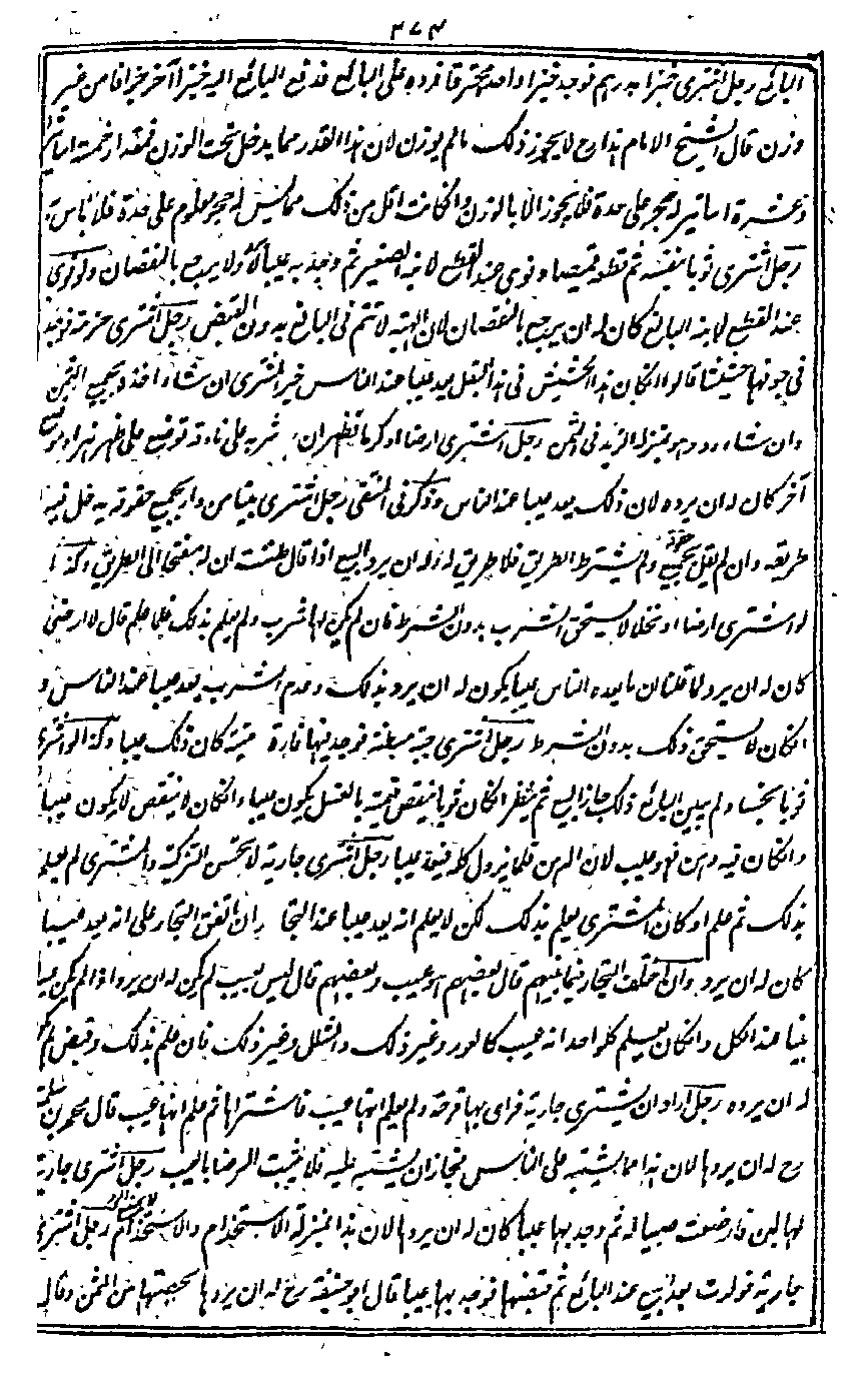 ٢٧٤
البائع رجل اشترى خبزا بدرهم فوجد خبزا واحدا محترقا فرده على البائع فدفع البائع اليه خبزا آخر جزافا من غير
وزن قال الشيخ الامام هذا رح لا يجوز ذلك ما لم يوزن لان هذا القدر مما يدخل تحت الوزن فمقدار خمسة اساتير
وعشرة اساتير له حجر على حدة فلا يجوز الا بالوزن وان كانت اقل من ذلك مما ليس له حجر معلوم على حدة فلا بأس به
رجل اشترى ثوبا بنفسه ثم قطعه قميصا ونوى عند القطع لابنه الصغير ثم وجد به عيبا لا ولا يرجع بالنقصان ولو نوى
عند القطع لابنه البالغ كان له ان يرجع بالنقصان لان الهبة لا تتم فى البالغ بدون القبض رجل اشترى حزمة فوجد
فى جوفها حشيشا قالوا ان كان هذا الحشيش فى هذا البقل يعد عيبا عند الناس خير المشترى ان شاء اخذه بجميع الثمن
وان شاء رده وهو بمنزلة الزيد فى الثمن رجل اشترى ارضا او كرما فظهر ان شربه على ناوقة توضع على ظهر نهر او موضع
آخر كان له ان يرده لان ذلك يعد عيبا عند الناس وذكر فى المنتقى رجل اشترى بيتا من دار بجميع حقوقه يدخل فيه
طريقه وان لم يقل بجميع حقوقه ولم يشترط الطريق فلا طريق له وله ان يرد البيع اذا قال ظننت ان له مفتحا الى الطريق وكذا
لو اشترى ارضا او نخلا لا يستحق الشرب بدون الشرط فان لم يكن لها شرب ولم يعلم بذلك فلما علم قال لا ارضى
كان له ان يرد لما قلنا ان ما يعده الناس عيبا يكون له ان يرد بذلك وعدم الشرب يعد عيبا عند الناس و
ان كان لا يستحق ذلك بدون الشرط رجل اشترى جبة مبطنة فوجد فيها فارة ميتة كان ذلك عيبا وكذا لو اشترى
ثوبا نجسا ولم يبين البائع ذلك جاز البيع ثم ينظر ان كان ثوبا ينتقص قيمته بالغسل يكون عيبا وان كان لا ينتقص لا يكون عيبا
وان كان فيه دهن فهو عيب لان الدهن قلما يزول كله فيعد عيبا رجل اشترى جارية لا تحسن التركية والمشترى لم يعلم
بذلك ثم علم او كان المشترى يعلم بذلك لكن لا يعلم انه يعد عيبا عند التجار ان اتفق التجار على انه يعد عيبا
كان له ان يرد وان اختلف التجار فيما بينهم قال بعضهم هو عيب وبعضهم قال ليس بعيب لم يكن له ان يرد اذا لم يكن عيبا
بينا عند الكل وان كان يعلم كل واحد انه عيب كالعور وغير ذلك والشلل وغير ذلك فان علم بذلك وقبض لم يكن
له ان يرده رجل اراد ان يشترى جارية فراى بها قرحة ولم يعلم انها عيب فاشتراها ثم علم انها عيب قال محمد بن سلمة
رح له ان يردها لان هذا مما يشتبه على الناس فجاز ان يشتبه عليه فلا يثبت الرضا بالعيب رجل اشترى جارية
لها لبن فارضعت صبيا له ثم وجد بها عيبا كان له ان يردها لان هذا بمنزلة الاستخدام والاستخدام لا يمنع الرد رجل اشترى
جارية فولدت بعد البيع عند البائع ثم قبضها فوجد بها عيبا قال ابو حنيفة رح له ان يردها بحصتها من الثمن وقال